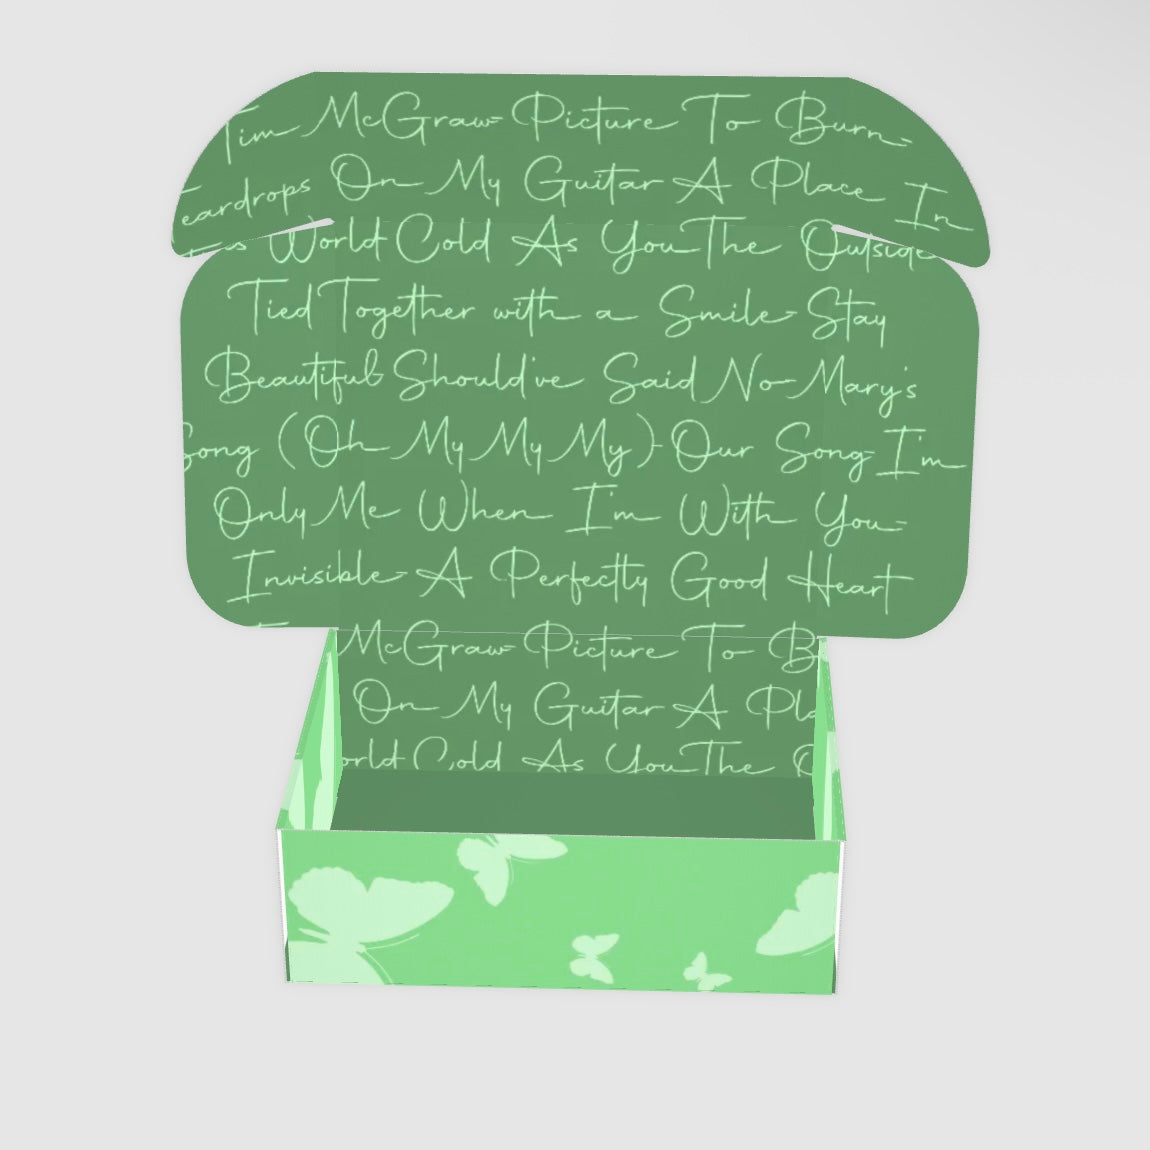 Tim McGraw- Picture To Burn-
eardrops On My Guitar A Place In
World Cold As You The Outside
Tied Together with a Smile- Stay
Beautiful Should've Said No- Mary's
Song (Oh My My My)- Our Song- I'm
Only Me When I'm With You-
Invisible- A Perfectly Good Heart
McGraw- Picture To B
On My Guitar A Pla
orld Cold As You The O